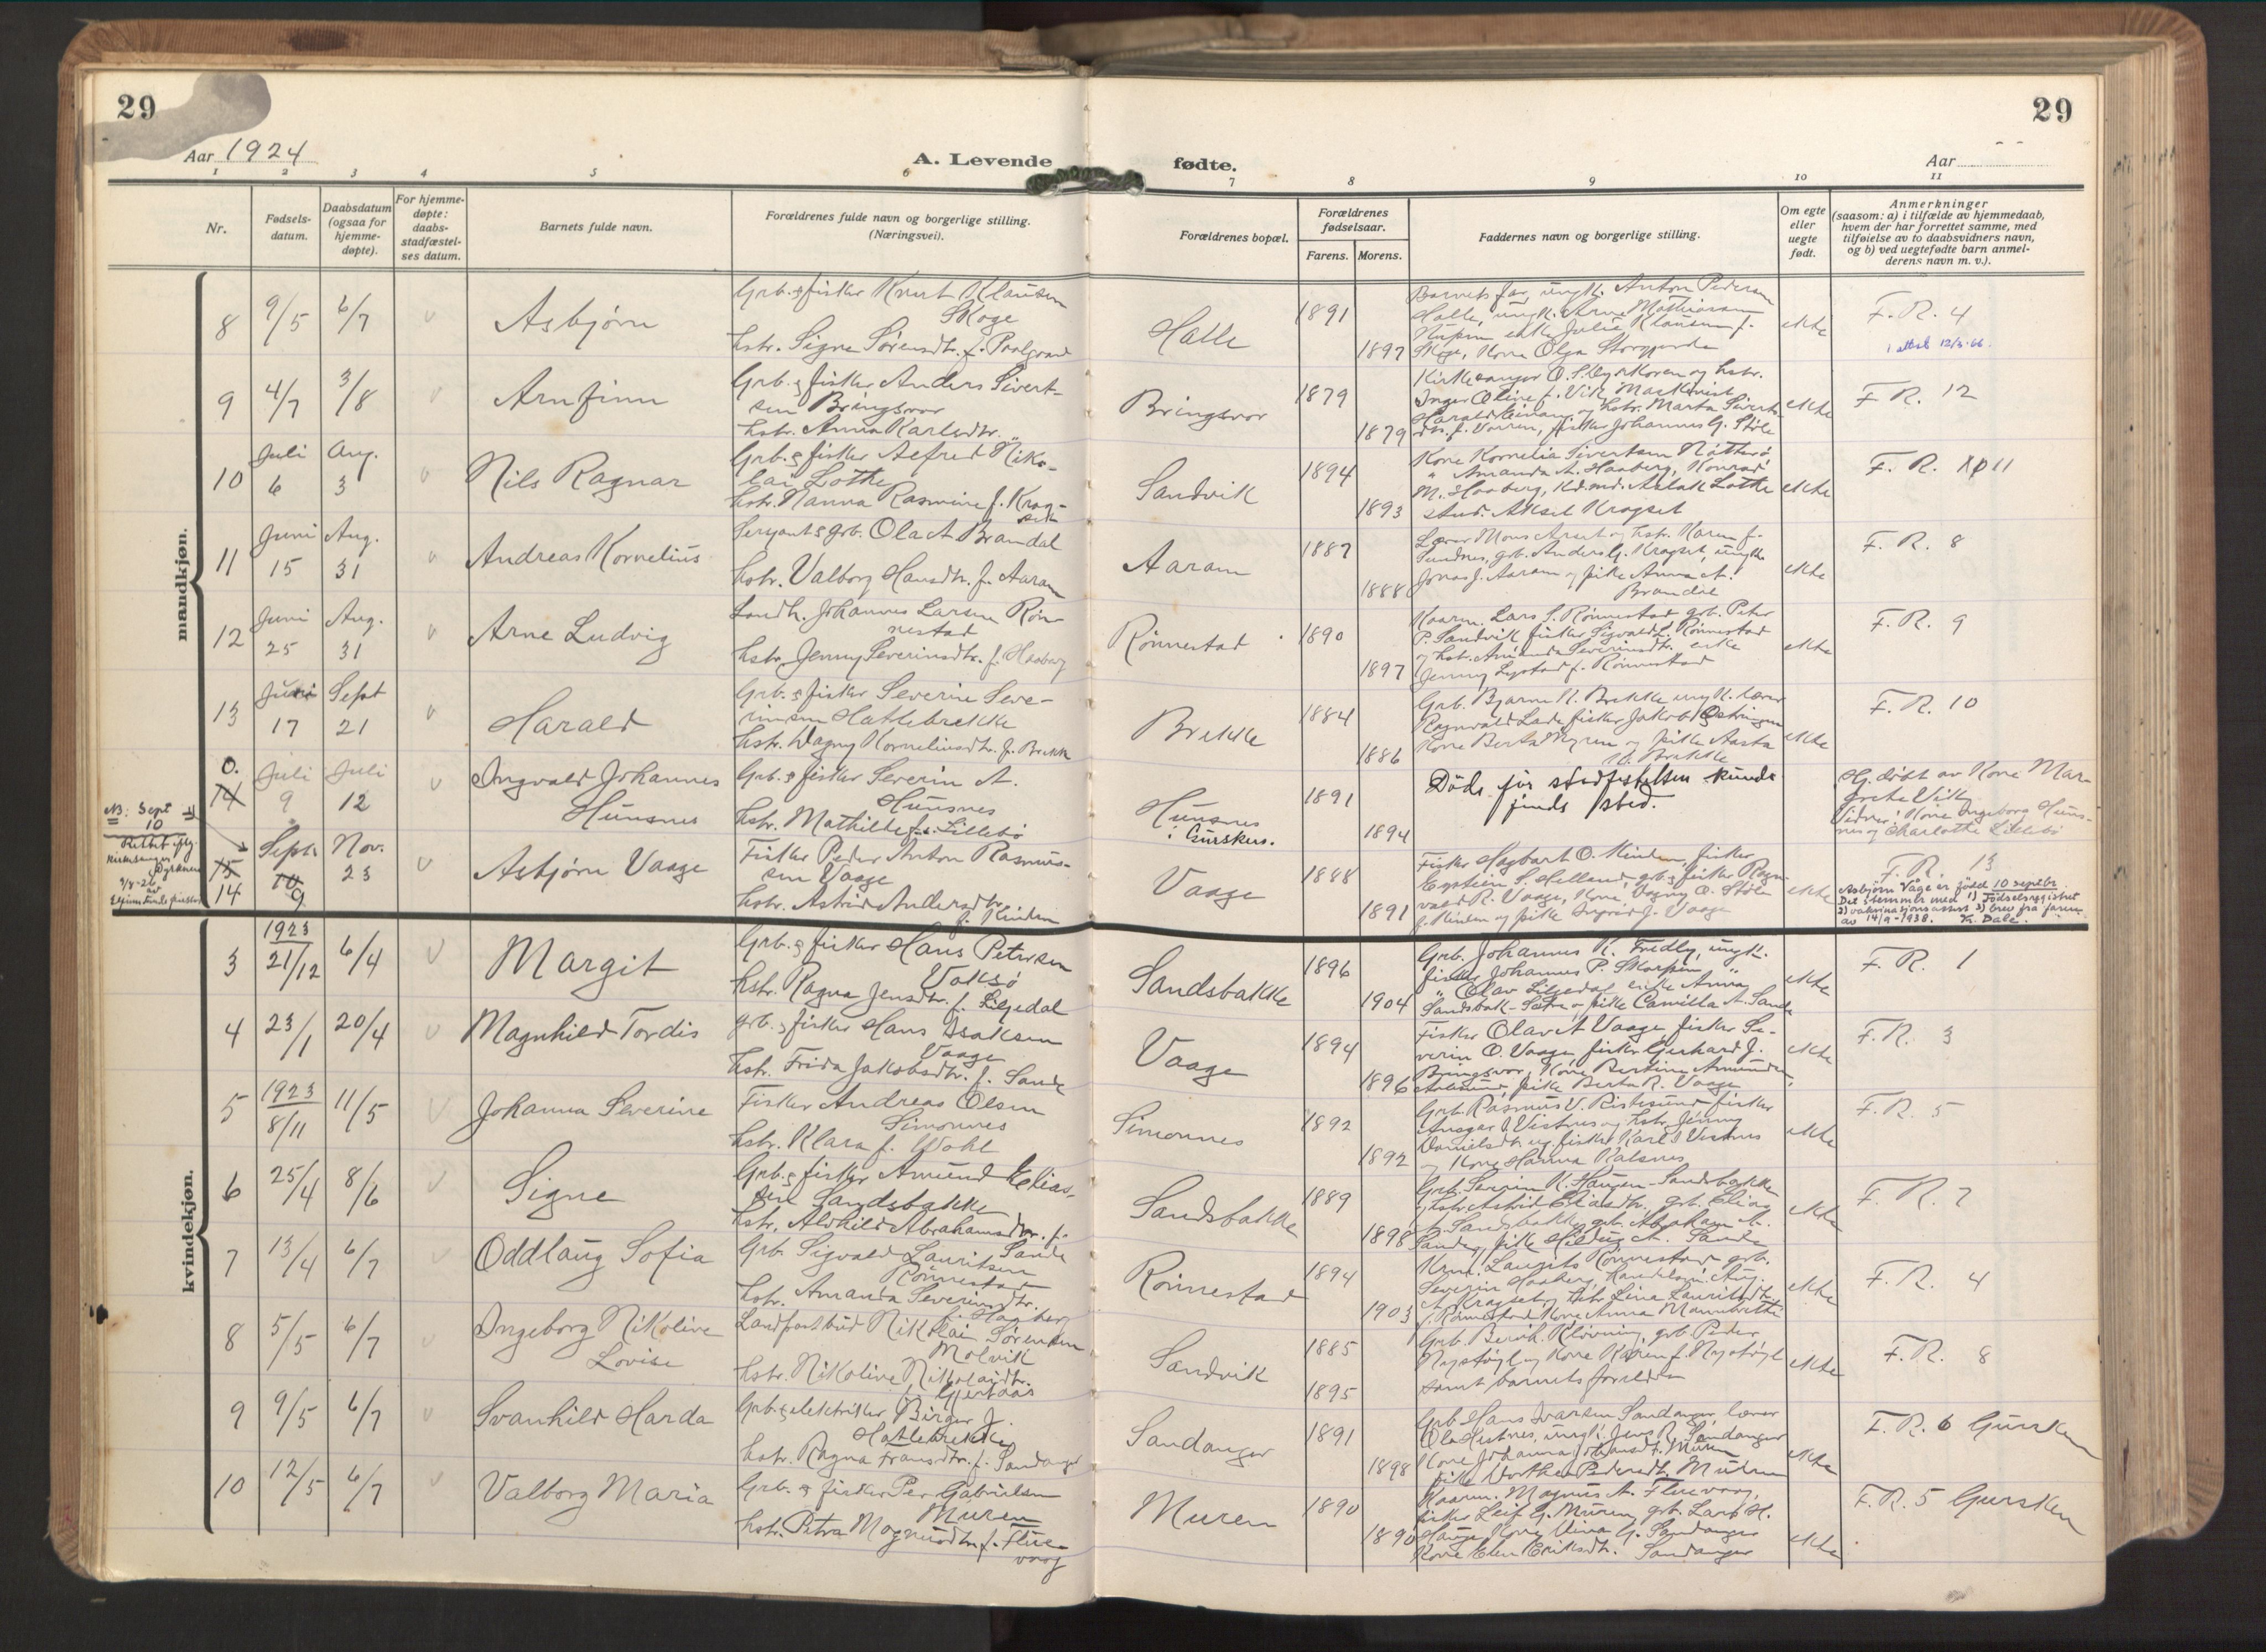 29
29
Aar 1924
A. Levende fødte.
Aar
1 2 3 4 5 6 7 8 9 10 11
Nr.
Fødsels-
datum.
Daabsdatum
(ogsaa for
hjemme-
døpte).
For hjemme-
døpte:
daabs-
stadfæstel-
ses datum.
Barnets fulde navn.
Forældrenes fulde navn og borgerlige stilling.
(Næringsvei).
Forældrenes bopæl.
Forældrenes
fødselsaar.
Farens. Morens.
Faddernes navn og borgerlige stilling.
Om egte
eller
uegte
født.
Anmerkninger
(saasom: a) i tilfælde av hjemmedaab,
hvem der har forrettet samme, med
tilføielse av to daabsvidners navn,
og b) ved uegtefødte barn anmel-
derens navn m. v.).
mandkjøn.
8
9/5
6/7
Asbjørn
Grb. & fisker Knut Klausen
Skoge
hstr. Signe Sørensdtr. f.
Halle
1891
1897
Barnets far, ungk. Anton Pedersen
Halle, ungk. Arne Mathiassen
enke Julie Klausen f.
Skoge, Kone Olga
ekte
F. R. 4
9
4/7
3/8
Arnfinn
Grb. & fisker Anders Sivert-
sen Bringsvor
hstr. Anna Karlsdtr. "
Bringsvor
1879
1879
Kirkesanger O. S. Dyrkoren og hstr.
Inger Oline f. Vik, Maskinist
Harald og hstr. Marta Siverts-
dtr. f. fisker Johannes G. Støle
ekte
F. R. 12
10
Juli
6
Aug.
3
Nils Ragnar
Grb. & fisker Alfred Niko-
lai Lothe
hstr. Nanna Rasmine f. Krag-
set
Sandvik
1894
1893
Kone Kornelia Sivertsen
" Amanda A. Haaberg, Konrad
M. Haaberg, Aslak Lothe
stud. Aksel Kragset
ekte
F. R. 11
11
Juni
15
Aug.
31
Andreas Kornelius
Sersjant & grb. Ola A Brandal
hstr. Valborg Hansdtr. f. Aaram
Aaram
1887
1888
Lærer Mons Aarset og hstr. Karen f.
Sundnes, grb. Anders G. Kragset, ungk.
Jonas J. Aaram og pike Anna A.
Brandal
ekte
F. R. 8
12
Juni
25
Aug.
31
Arne Ludvig
Landh. Johannes Larsen Røn-
nestad
hstr. Jenny Severinsdtr. f. Haaberg
Rønnestad
1890
1897
Kaarm. Lars S. Rønnestad grb. Peter
P. Sandvik fisker Sigvald L. Rønnestad
og hstr. Amanda Severinsdtr. enke
Jenny f. Rønnestad
ekte
F. R. 9
13
Juni
17
Sept
21
Harald
Grb. & fisker Severin Seve-
rinsen Hatlebrekke
hstr. Dagny Korneliusdtr. f. Brekk
Brekke
1884
1886
Grb. Bjarne K. Brekke ungk. lærer
Ragnvald Lade fisker Jakob
Kone Berta Myren og pike Aasta
K. Brekke
ekte
F. R. 10
0.
14
Juli
9
Juli
12
Ingvald Johannes
Hunsnes
Grb. & fisker Severin A.
Hunsnes
hstr. Mathilde f. Lillebø
Hunsnes
i Gurskus.
1891
1894
Døde før stadfestelsen kunde
finde sted.
Hj. døbt av Kone Mar-
grete Vik
Vidner: Kone Ingeborg Huns-
nes og Charlotte Lillebø
NB: Sept
10
Rettet
kirkesanger
Dyrkoren
9/8-26
av
15
14
Sept.
10
9
Nov.
23
Asbjørn Vaage
Fisker Peder Anton Rasmus-
sen Vaage
hstr. Astrid Andersdtr.
f. Kinden
Vaage
1888
1891
Fisker Hagbart O. Kinden, fisker
Eystein S. Helland, grb. & fisker Ragn-
vald R. Vaage, Kone Dagny O. Støle
f. Kinden og pike Ingrid J. Vaage
ekte
F. R. 13
Asbjørn Våge er fødd 10 septbr.
Det stemmer med 1) Fødselsregistret
2) vaksinasjonsattest 3) brev fra faren
av 14/9-1938. K. Dale.
kvindekjøn.
3
1923
21/12
6/4
Margit
Grb. & fisker Hans Petersen
Voksø
hstr. Ragna Jensdtr. f. Liljedal
Sandsbakke
1896
1904
Grb. Johannes K. Fredly, ungk.
fisker Johannes P. Skorpen "
" Olav Liljedal enke Anna
Sandsbak-Sætre og pike Camilla A. Sande
ekte
F. R. 1
4
23/1
20/4
Magnhild Tordis
grb. & fisker Hans Isaksen
Vaage
hstr. Frida Jakobsdtr. f. Sande
Vaage
1894
1896
Fisker Olav A Vaage, fisker Se-
verin O. Vaage, fisker Gerhard J.
Bringsvor, Kone Bertine Amundsen,
Aalesund, pike Berta R. Vaage
ekte
F. R. 3
5
1923
8/11
11/5
Johanna Severine
Fisker Andreas Olsen
Simonnes
hstr. Klara f. Wohl
Simonnes
1892
1892
Grb. Rasmus V. Ristesund fisker
Ansgar J. Vestnes og hstr. Jenny
Danielsdtr. og fisker Karl J Vestnes
og Kone Hanna Kalsnes
ekte
F. R. 5
6
25/4
8/6
Signe
Grb. & fisker Amund Elias-
sen Sandsbakke
hstr. Alvhild Abrahamsdtr. f.
Sande
Sandsbakke
1889
1898
Grb. Severin K. Haugen-Sandsbakke
& hstr. Astrid Eliasdtr., grb. Elias
A. Sandsbakke, grb. Abraham A.
Sande, pike Hildug A. Sande
ekte
F. R. 7
7
13/4
6/7
Oddlaug Sofia
Grb. Sigvald Lauritsen
Rønnestad
hstr. Amanda Severinsdtr.
f. Haaberg
Rønnestad
1894
1903
Krm. Laurits Rønnestad grb.
Severin Haaberg, Handelsm. Aug.
A. Kragset og hstr. Lina Lauritsdtr.
f. Rønnestad Kone Anna
ekte
F. R. 4
8
5/5
6/7
Ingeborg Nikolive
Lovise
Landpostbud Nikolai Sørensen
Molvik
hstr. Nikoline Nikolaidtr.
f. Gjerdaas
Sandvik
1885
1895
Grb. Bernh. Kløvning, grb. Peder
Nystøyl og Kone Karen f. Nystøyl
samt barnets foreldre
ekte
F. R. 8
9
9/5
6/7
Svanhild Harda
Grb. & elektriker Birger J.
Hatlebrekke
hstr. Ragna Fransdtr. f. Sandanger
Sandanger
1891
1898
Grb. Hans Ivarsen Sandanger, lærer
Ola Hestnes, ungk. Jens R. Sandanger
Kone Johanna Johansdtr. Muren
pike Dorthea Pedersdtr. Muren
ekte
F. R. 6 Gursken
10
12/5
6/7
Valborg Maria
Grb. & fisker Per Gabrielsen
Muren
hstr. Petra Magnusdtr. f. Flue-
vaag
Muren
1890
1890
Kaarm. Magnus A. Fluevaag,
fisker Leif G. Muren, grb. Lars H.
Hauge Kone Dina G. Sandanger
Kone Elen Eriksdtr. Sandanger
ekte
F. R. 5 Gursken